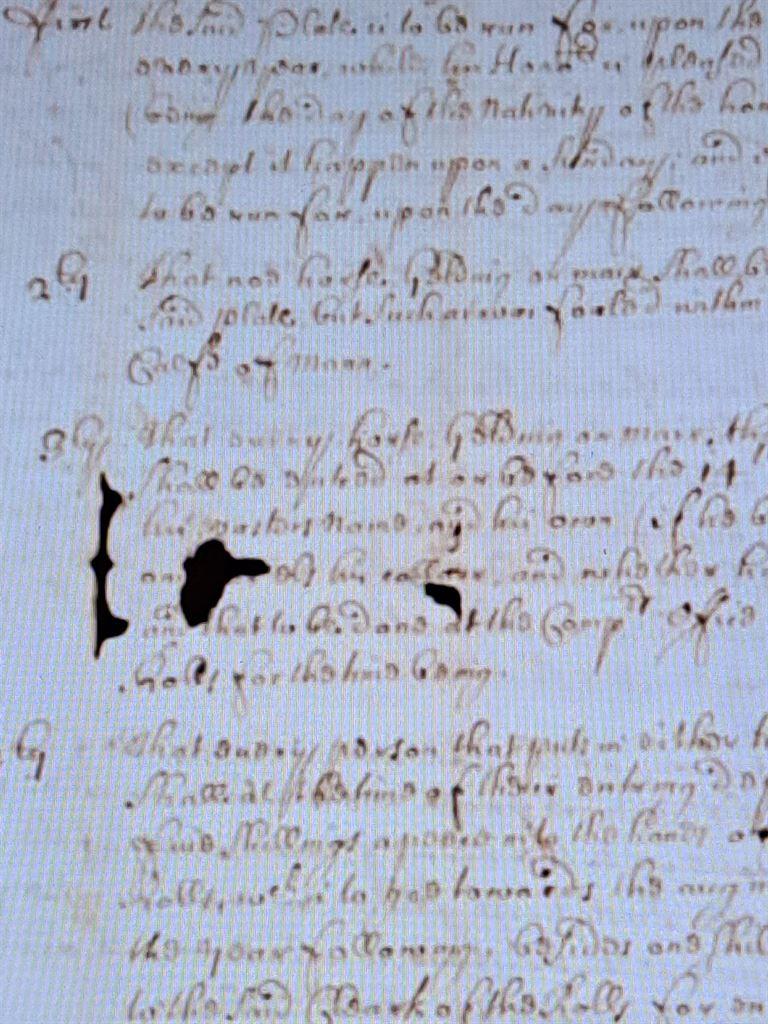 First the said Plate is to be run for, upon the
every year, while his Honor is pleased
(being the day of the Nativity of the hon
except it happen upon a Sunday, and
to be run for, upon the day following
2ly That noe horse, Gelding or mare shall b
said plate, but such as was foaled within
Calfe of Mann.
3ly That every horse, Gelding or mare, th
Shall be entred at or before the 14th
his masters Name, and his owne (if he b
els his and whether h
and that to be done at the Compt Office
Rolls for the time being.
ly That every person that puts in either h
Shall at the time of their entring de
five shillings a peece into the hands o
Rolls, wch is to goe towards the aug
the year following, besides one shil
to the said Cleark of the Rolls for en